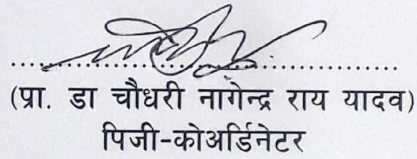 (प्रा. डा चौधरी नागेन्द्र राय यादव)
पिजी-कोअर्डिनेटर